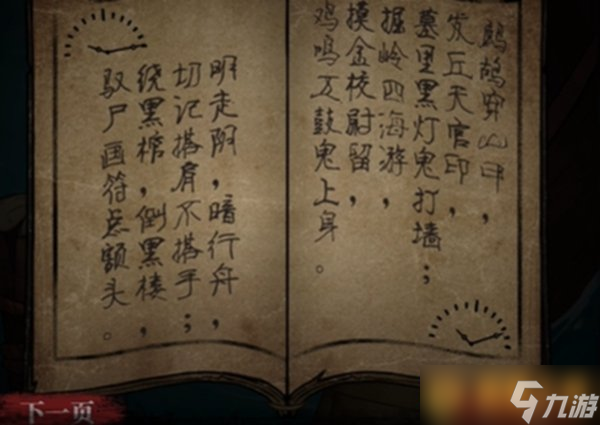 鹧鸪穿山甲，
发丘天官印，
墓里黑灯鬼打墙；
掘岭四海游，
摸金校尉留，
鸡鸣五鼓鬼上身。
明走阴，暗行舟，
切记搭肩不搭手；
绕黑棺，倒黑楼，
驭尸画符点额头。
下一页
九游